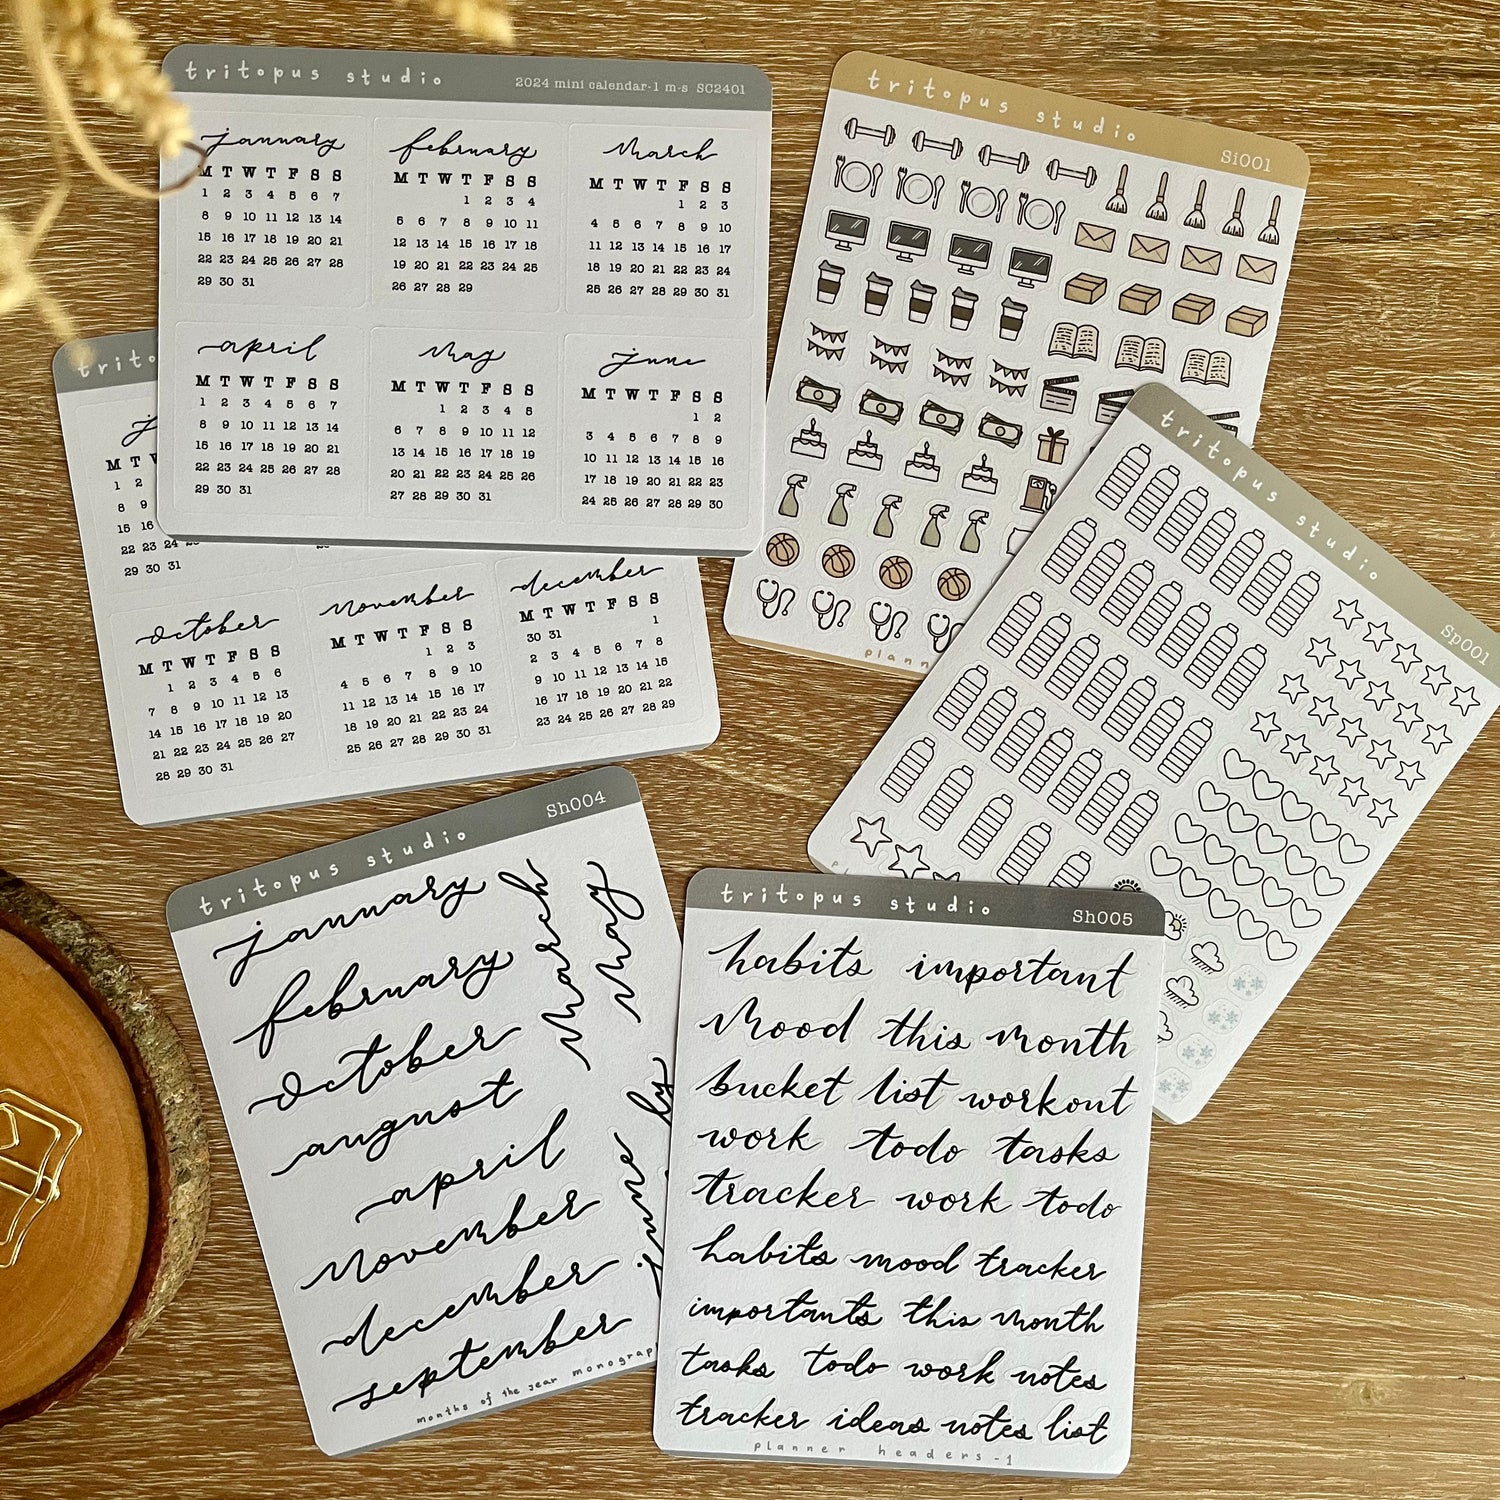 tritopus studio
2024 mini calendar-1 m-s SC2401
january february march
M T W T F S S M T W T F S S M T W T F S S
1 2 3 4 5 6 7 1 2 3 4 1 2 3
8 9 10 11 12 13 14 5 6 7 8 9 10 11 4 5 6 7 8 9 10
15 16 17 18 19 20 21 12 13 14 15 16 17 18 11 12 13 14 15 16 17
22 23 24 25 26 27 28 19 20 21 22 23 24 25 18 19 20 21 22 23 24
29 30 31 26 27 28 29 25 26 27 28 29 30 31
april may june
M T W T F S S M T W T F S S M T W T F S S
1 2 3 4 5 6 7 1 2 3 4 5 1 2
8 9 10 11 12 13 14 6 7 8 9 10 11 12 3 4 5 6 7 8 9
15 16 17 18 19 20 21 13 14 15 16 17 18 19 10 11 12 13 14 15 16
22 23 24 25 26 27 28 20 21 22 23 24 25 26 17 18 19 20 21 22 23
29 30 31 27 28 29 30 31 24 25 26 27 28 29 30
M T W
1 2
8 9
15 16
22 23 24
29 30 31
october november december
M T W T F S S M T W T F S S M T W T F S S
30 31 1
1 2 3 4 5 6 1 2 3 2 3 4 5 6 7 8
7 8 9 10 11 12 13 4 5 6 7 8 9 10 9 10 11 12 13 14 15
14 15 16 17 18 19 20 11 12 13 14 15 16 17 16 17 18 19 20 21 22
21 22 23 24 25 26 27 18 19 20 21 22 23 24 23 24 25 26 27 28 29
28 29 30 31 25 26 27 28 29 30 31
tritopus studio
Si001
tritopus studio
Sp001
tritopus studio
Sh004
january
february
october
august
april
november
december
september
march
may
june
months of the year
tritopus studio
Sh005
habits important
mood this month
bucket list workout
work todo tasks
tracker work todo
habits mood tracker
importants this month
tasks todo work notes
tracker ideas notes list
planner headers-1